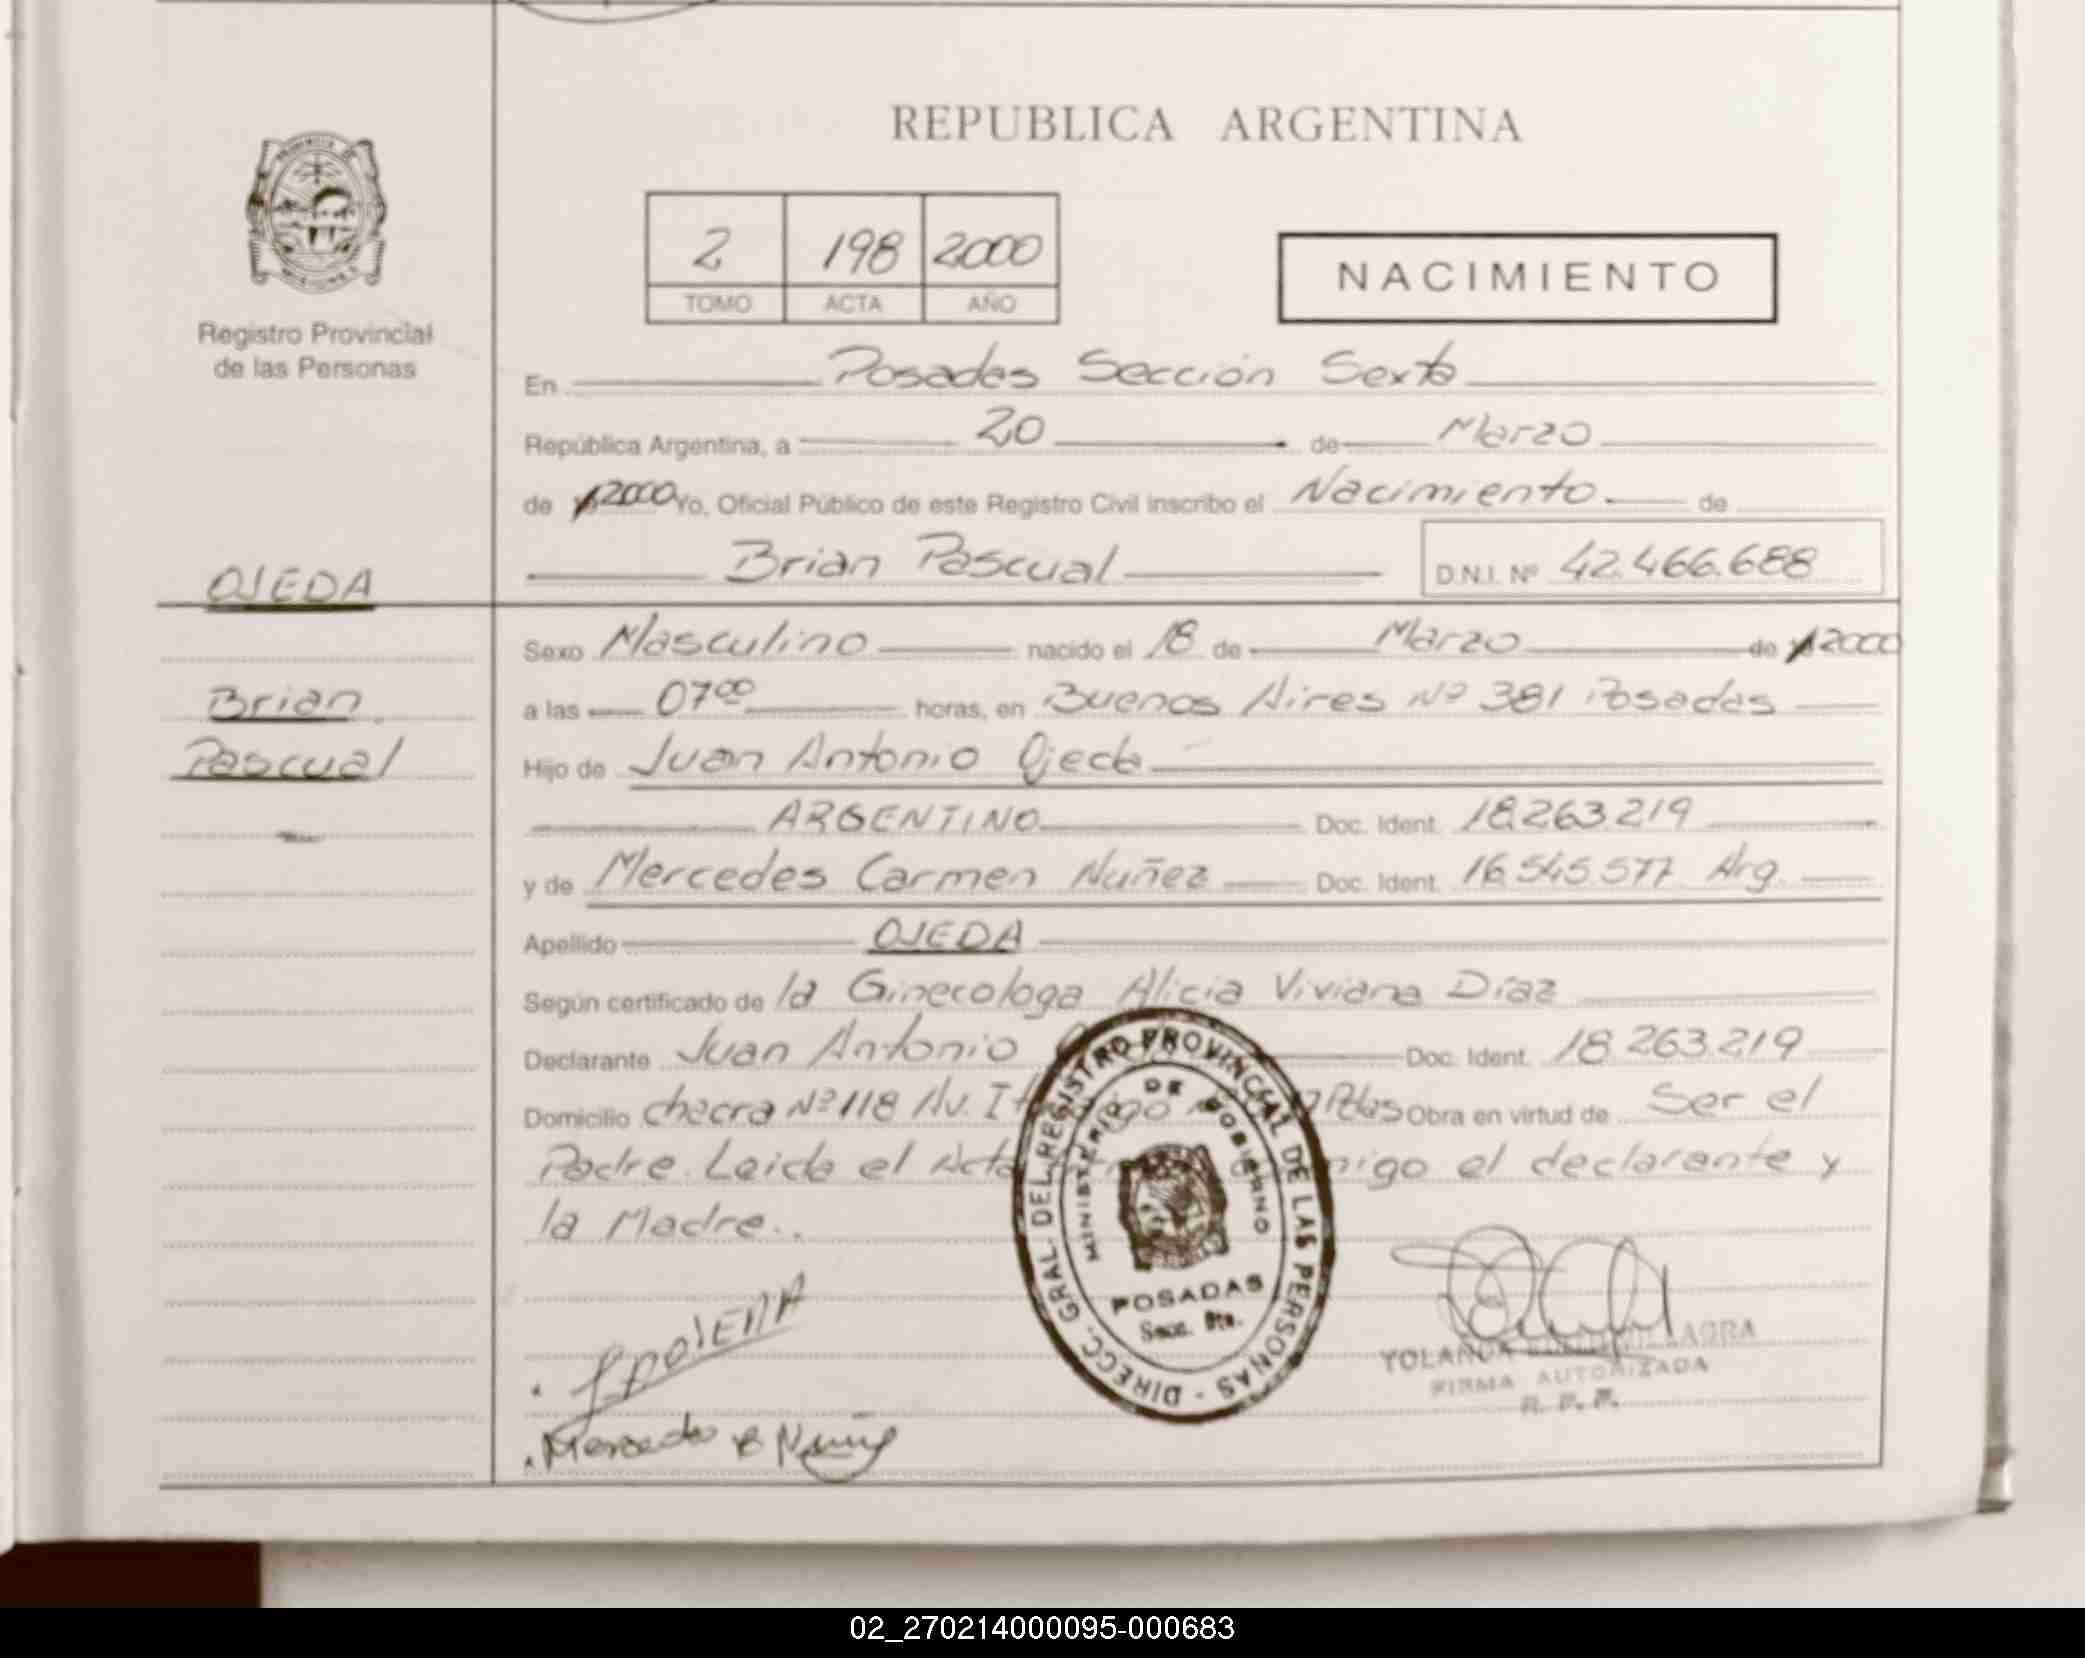 REPUBLICA ARGENTINA
2 198 2000
TOMO ACTA AÑO
NACIMIENTO
Registro Provincial
de las Personas
En Posadas Sección Sexta
República Argentina, a 20 de Marzo
de 2000 Yo, Oficial Público de este Registro Civil inscribo el Nacimiento. de
Brian Pascual D.N.I. Nº 42.466.688
OJEDA
Brian
Pascual
Sexo Masculino nacido el 18 de Marzo de 2000
a las 07⁰⁰ horas, en Buenos Aires Nº 381 Posadas
Hijo de Juan Antonio Ojeda
ARGENTINO Doc. Ident. 18.263.219
y de Mercedes Carmen Nuñez Doc. Ident. 16.545.577 Arg.
Apellido OJEDA
Según certificado de la Ginecologa Alicia Viviana Diaz
Declarante Juan Antonio Doc. Ident. 18.263.219
Domicilio chacra Nº 118 Av. Pdas Obra en virtud de Ser el
Padre. Leida el Acta el declarante y
la Madre..
DIRECC. GRAL. DEL REGISTRO PROVINCIAL DE LAS PERSONAS -
MINISTERIO DE GOBIERNO
POSADAS
Secc. 6ta.
OJEDA
Mercedes C Nuñez
YOLANDA
FIRMA AUTORIZADA
R. P. P.
02_270214000095-000683